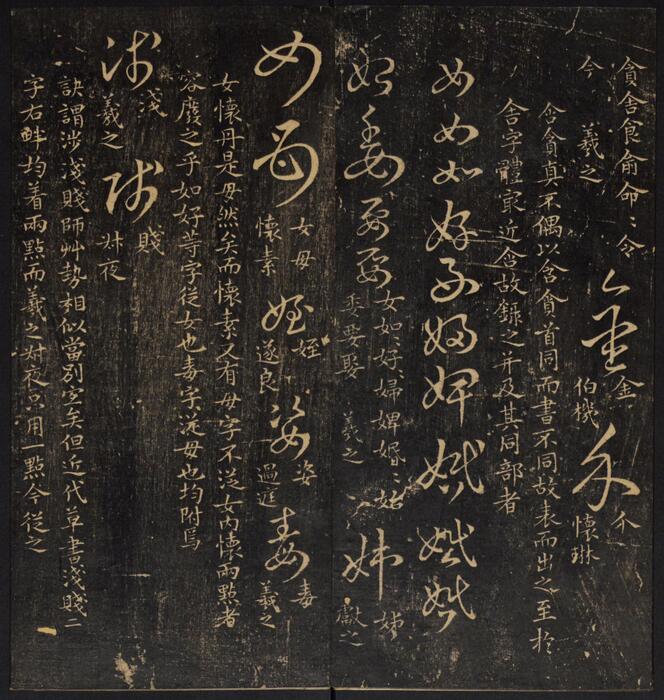 貪含食俞命﹕令
今 羲之 金 金 伯機 介 介 懷琳
含貪真不偶以含貪首同而書不同故表而出之至於
含字體最近念故錄之并及其同部者
女女如好好婦婢婚婚
始委要娶
女如﹕好﹕婦婢婚﹕始
委要娶 羲之
姊 姊 獻之
女母 女母 懷素 姪 姪 遂良 姿 姿 過庭 毒 毒 羲之
女懷丹是母然矣而懷素又有母字不從女內懷兩點者
容廢之乎如好等字從女也毒字從母也均附焉
淺 淺 羲之 賤 賤 叔夜
訣謂涉淺賤師艸勢相似當別字矣但近代草書淺賤二
字右畔均着兩點而羲之叔夜只用一點今從之